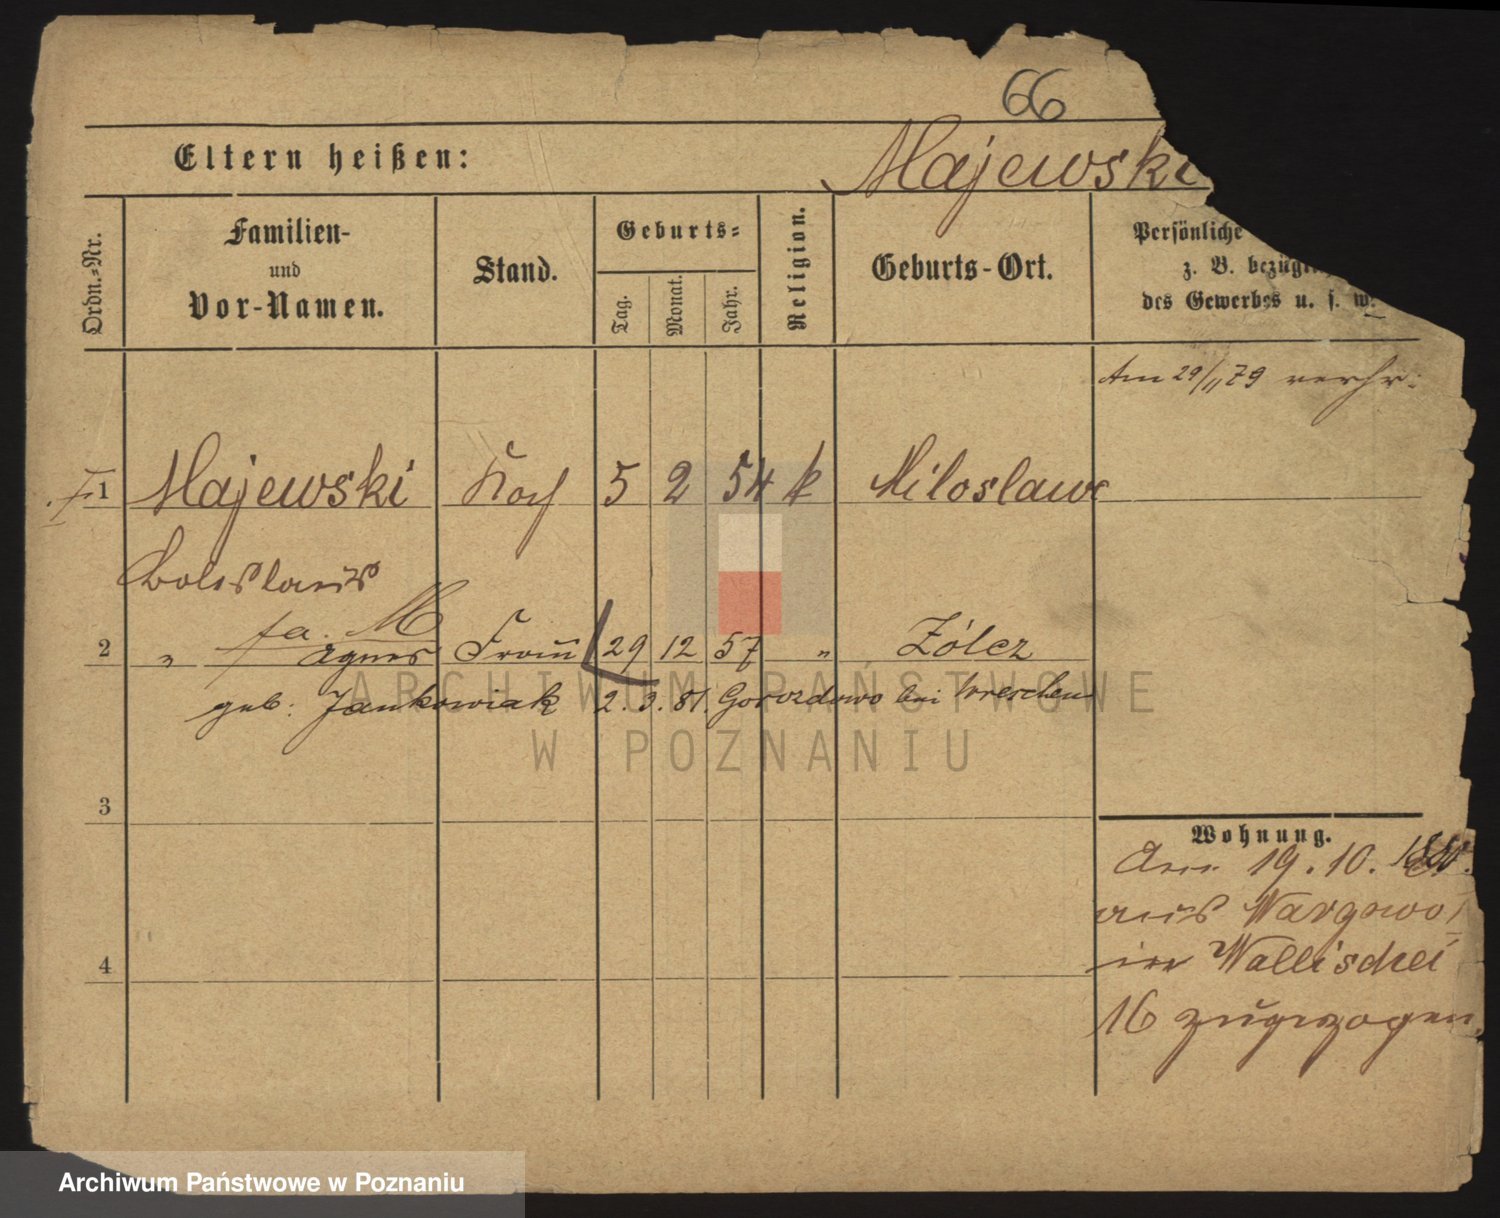 66
Eltern heißen:
Majewski
Ordn.-Nr.
Familien-
und
Vor-Namen.
Stand.
Geburts-
Tag.
Monat.
Jahr.
Religion.
Geburts-Ort.
Persönliche
z. B. bezügl
des Gewerbes u. s. w.
Am 29/11 79 verhr.
1 Majewski Koch 5 2 54 k Miloslaw
Boleslaus
fa. M
2 " Agnes Frau 29 12 57 " Zólcz
geb. Jankowiak 2. 3. 81. Gorozdowo bei Wreschen
3
4
Wohnung.
Am 19. 10.
aus Wargowo
in Wallischei
16 zugezogen
ARCHIWUM PAŃSTWOWE
W POZNANIU
Archiwum Państwowe w Poznaniu